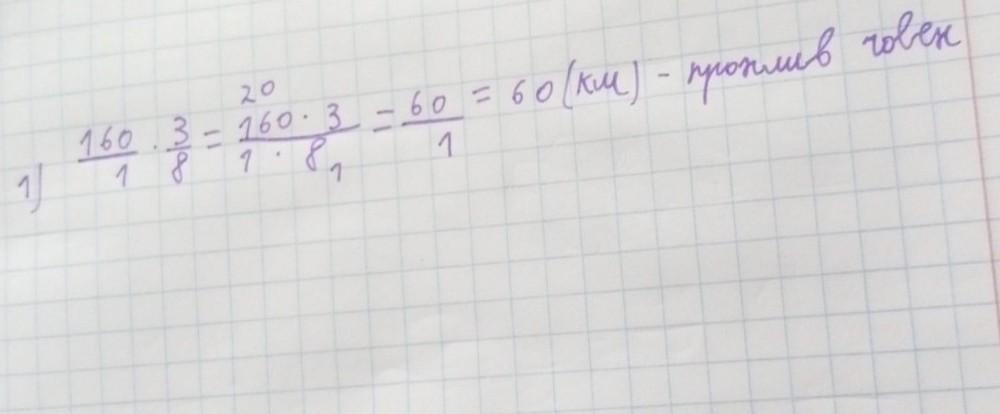 1) 160/1 · 3/8 = 20 160 · 3 / 1 · 8 1 = 60/1 = 60 (км) - проплив човен